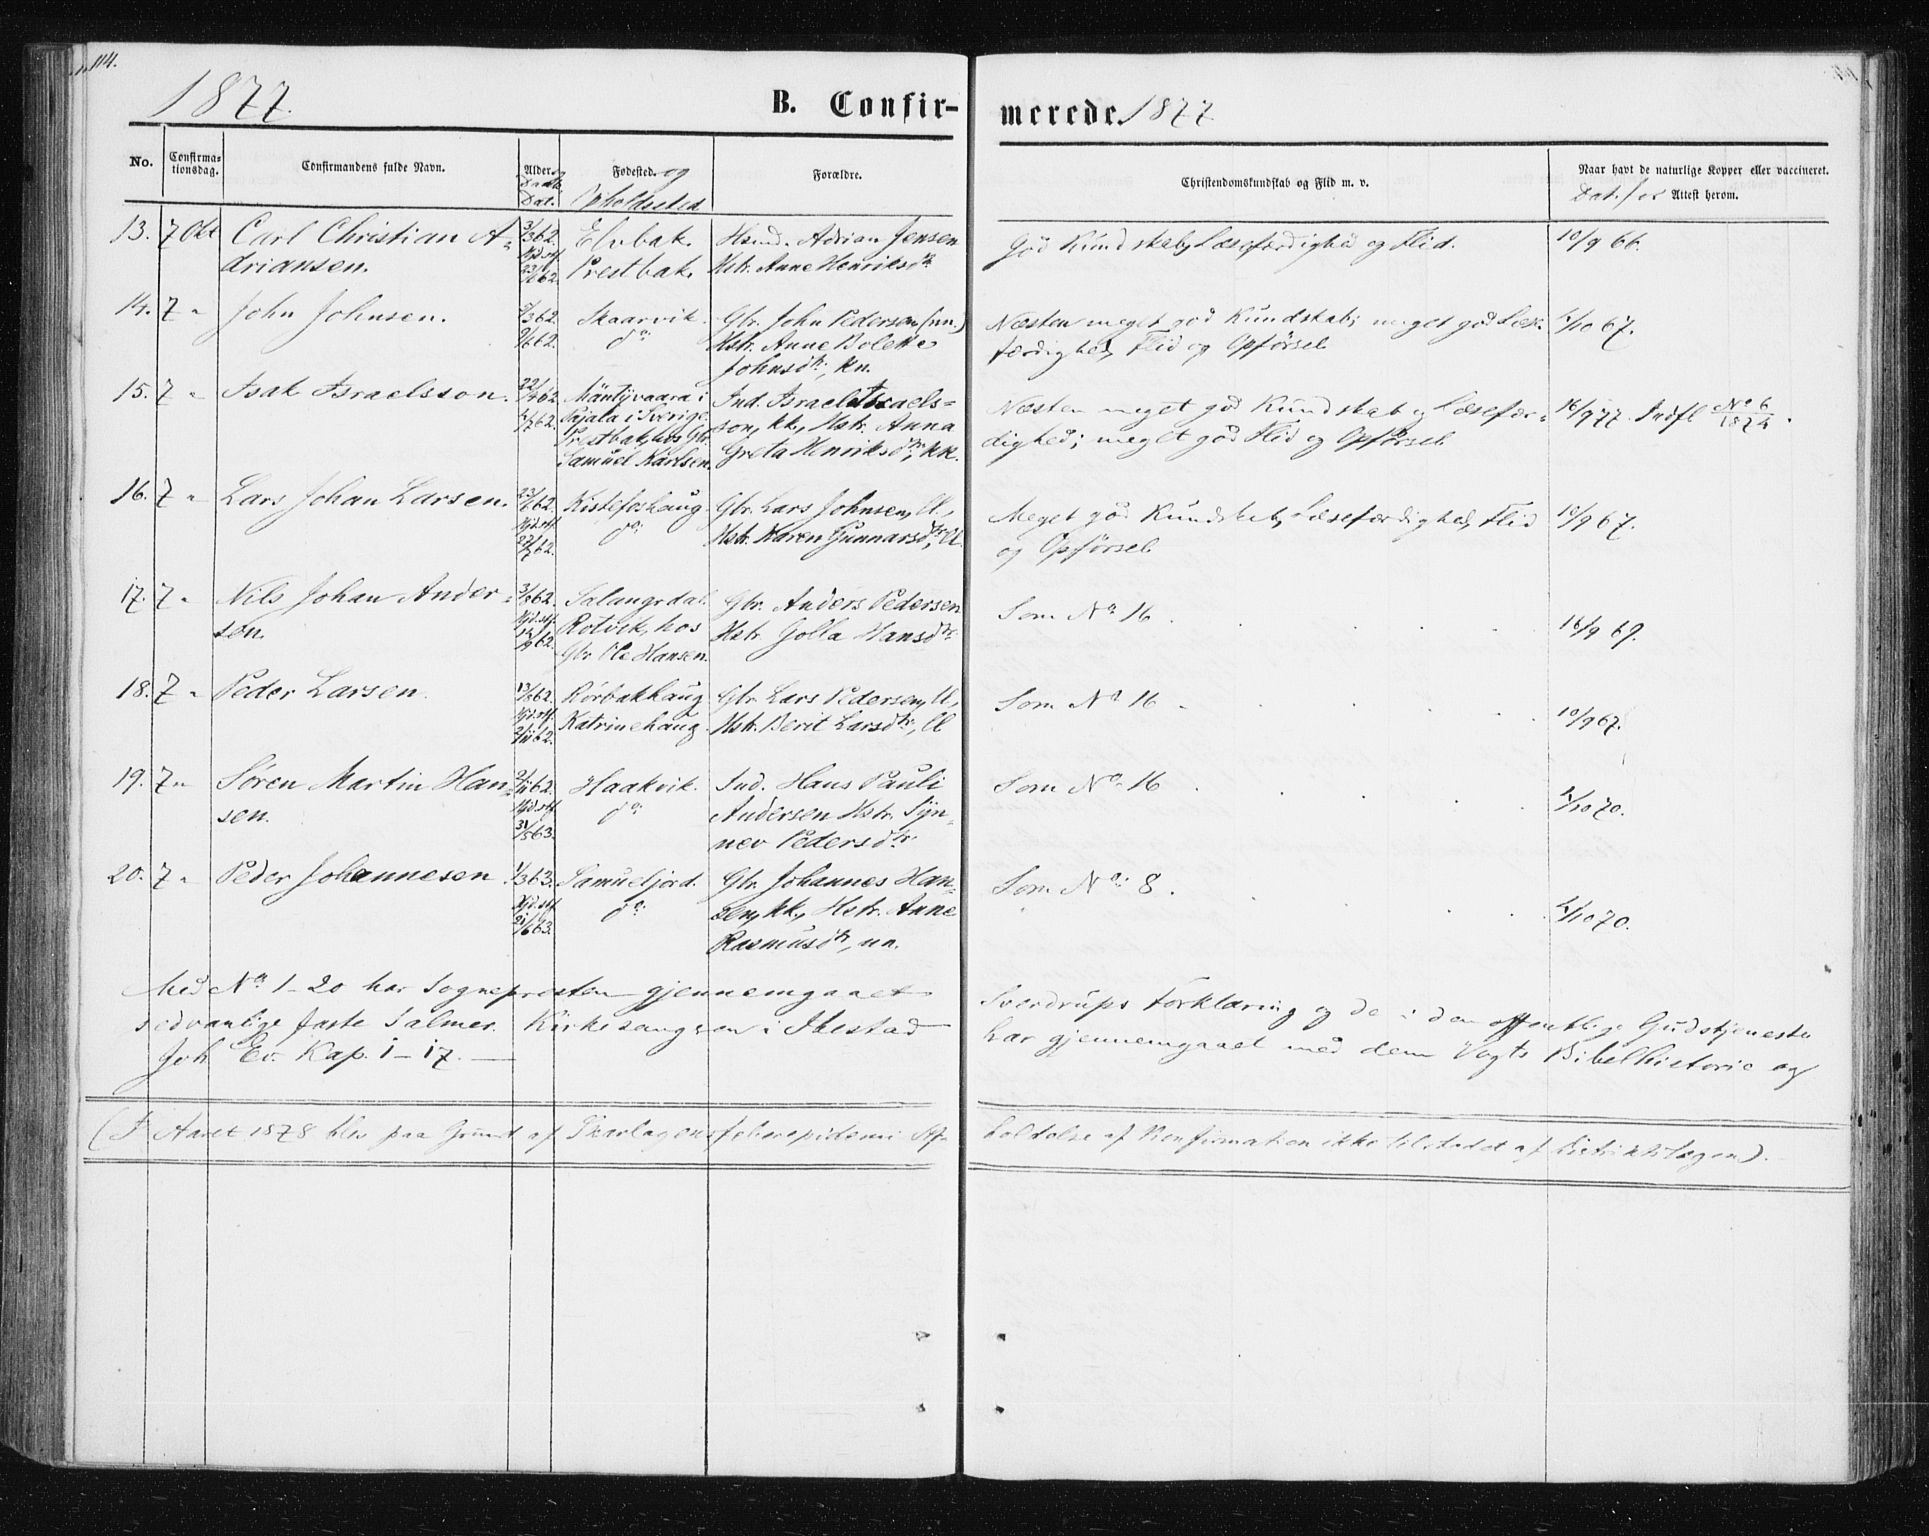 114.
1877.
B. Confir-
merede. 1877
No.
Confirma-
tionsdag.
Confirmandens fulde Navn.
Alder og
Daab.
Dat.
Fødested og
Opholdssted
Forældre.
Christendomskundskab og Flid m. v.
Naar havt de naturlige Kopper eller vaccineret.
Dat. for Attest herom.
13. 7 Okt Carl Christian A-
driansen.
3/3 62.
Hjd.st.
Elvbak.
Prestbak.
Hsmd. Adrian Jensen
Hstr. Anne Henriksdtr.
God Kundskab, Læsefærdighed og Flid.
10/9 66.
14. 7 " John Johnsen.
Skaarvik.
do.
Gbr. John Pedersen (nn.)
Hstr. Anne Bolette
Johnsdtr, kn.
Næsten meget god Kundskab; meget god Læse-
færdighed, Flid og Opførsel.
15. 7 " Isak Israelsson.
Mäntyvaara i
Pajala i Sverige
Prestbak, hos Gbr.
Samuel Karlsen.
Ind. Israel Israels-
son, kk, Hstr. Anna
Greta Henriksdtr, kk.
Næsten meget god Kundskab og Læsefær-
dighed; meget god Flid og Opførsel.
16/9 77. Indfl No 6/1874.
16. 7 " Lars Johan Larsen.
Hjd.st.
Kistefoshaug
do.
Gbr. Lars Johnsen,
Hstr. Karen Gunnarsdtr,
Meget god Kundskab, Læsefærdighed, Flid
og Opførsel.
10/9 67.
17. 7 " Nils Johan Ander-
sen.
3/8 62.
Hjd.st.
Salangsdal.
Rotvik, hos
Gbr Ole Hansen.
Gbr. Anders Pedersen
Hstr. Golla Hansdtr.
Som No 16
16/9 69.
18. 7 " Peder Larsen.
Hjd.st.
2/11 62.
Rørbakhaug
Katrinehaug.
Gbr. Lars Pedersen,
Hstr. Berit Larsdtr,
Som No 16
10/9 67.
19. 7 " Søren Martin Han-
sen.
2/11 62.
Hjd.st.
31/5 63.
Haakvik.
do.
Ind. Hans Pauli
Andersen Hstr. Syn-
nev Pedersdtr.
Som No 16
20. 7 " Peder Johannesen.
1/3 63.
Hjd.st.
21/6 63.
Samuelfjord.
do.
Gbr. Johannes Han-
sen, kk, Hstr. Anne
Rasmusdtr, nn.
Som No 8.
Med No 1-20 har Sognepresten gjennemgaaet
Sverdrups Forklaring og de i den offentlige Gudstjeneste
sedvanlige faste Salmer. Kirkesangeren i Ibestad
har gjennemgaaet med dem Vogts Bibelhistorie og
Joh Ev. Kap. 1-17.
(I Aaret 1878 blev paa Grund af Skarlagensfeberepidemi Af-
holdelse af Konfirmation ikke tilstedet af Distriktslægen).